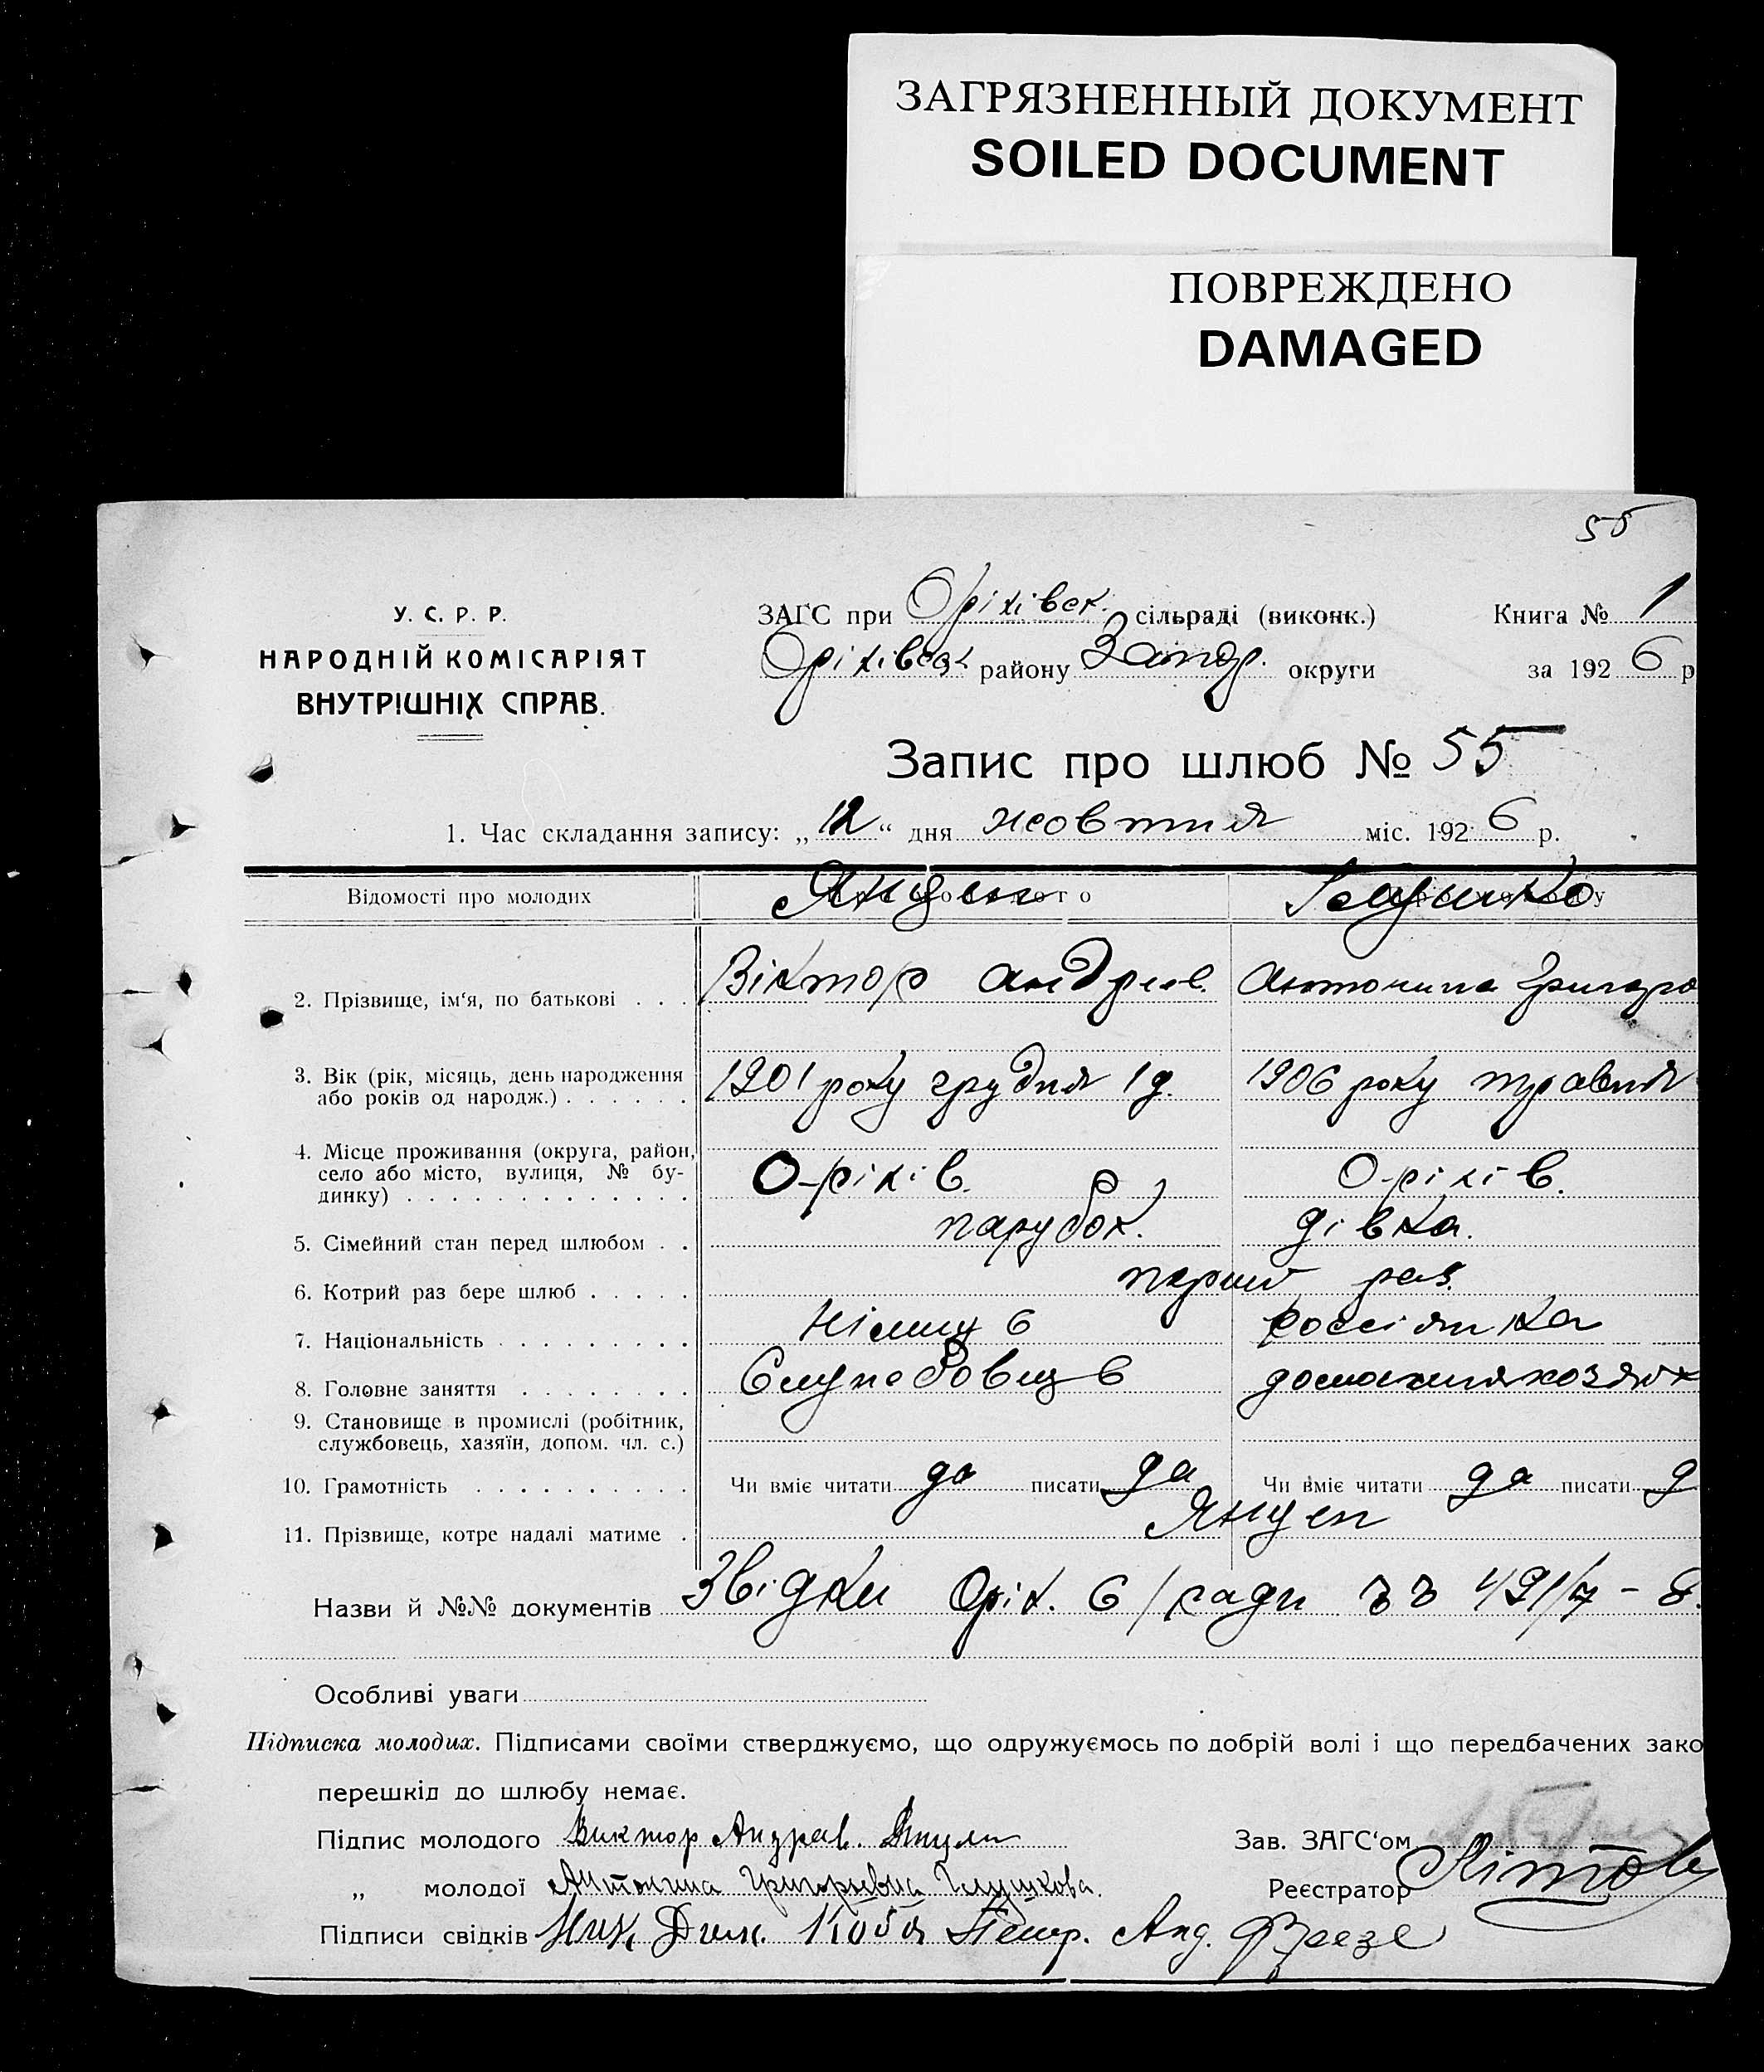 ЗАГРЯЗНЕННЫЙ ДОКУМЕНТ
SOILED DOCUMENT
ПОВРЕЖДЕНО
DAMAGED
55
У. С. Р. Р.
НАРОДНІЙ КОМІСАРІЯТ
ВНУТРІШНІХ СПРАВ.
ЗАГС при Оріхівськ. сільраді (виконк.) Книга № 1
Оріхівськ району Запор. округи за 1926 р
Запис про шлюб № 55
1. Час складання запису: „12“ дня жовтня міс. 1926 р.
Відомості про молодих Янцен
2. Прізвище, ім‘я, по батькові . . . Віктор Андреев. Антонина Григоро
3. Вік (рік, місяць, день народження 1901 року грудня 1д. 1906 року травня
або років од народж.) . . . . . .
4. Місце проживання (округа, район,
село або місто, вулиця, № бу- Оріхів. Оріхів.
динку) . . . . . . . . . . . . .
5. Сімейний стан перед шлюбом . . парубок. дівка.
6. Котрий раз бере шлюб . . . . . перший раз.
7. Національність . . . . . . . . . німець россіянка
8. Головне заняття . . . . . . . . Службовець домашняхозяйк
9. Становище в промислі (робітник,
службовець, хазяїн, допом. чл. с.)
10. Грамотність . . . . . . . . . . Чи вміє читати да писати да Чи вміє читати да писати д
11. Прізвище, котре надалі матиме . Янцен
Назви й №№ документів Звідки Оріх. С/ради 491/7-8.
Особливі уваги
Підписка молодих. Підписами своїми стверджуємо, що одружуємось по добрій волі і що передбачених зако
перешкід до шлюбу немає.
Підпис молодого Виктор Андреев. Янцен Зав. ЗАГС‘ом
„ молодої Антонина Григорьевна Глушкова. Реєстратор
Підписи свідків Ник. Дим. Коба Петр. Анд. Фрезе